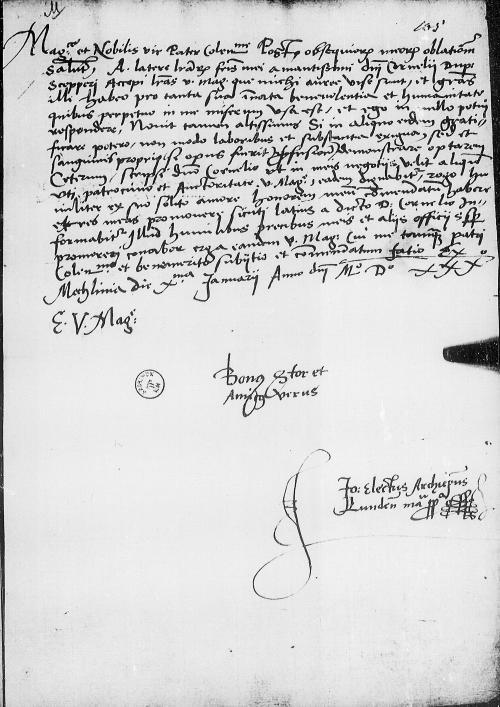 Mag.ce et Nobilis vir Pater Colen.me Post obsequiorum meorum oblationem
Salutem, A latere tradorum fratris mei amantissimi dni Cornelij Dup.
Scepperi Accepi lras v. mag. que michi auree vise sunt, et gratias
illi habeo pro tanta sua innata benevolentia et humanitate
quibus perpetuo in me misericors usa est, et ego in nullo potui
respondere, Novit tamen altissimus Si in aliquo eidem grati-
ficare potero, non modo laboribus et substantia exigua, sed et
sanguinis proprij si opus fuerit effusione demonstrare optarem
Ceterum, scripsi dno Cornelio ut in meis negotijs velit aliqui
uti, patrocinio et Auctoritate, v. Mag. eadem dignabitur, rogo hu-
militer ex suo solito amore honorem meum commendatum habere
et res meas promoveri sicuti latius a dicto D. Cornelio In-
formabitur Illud humilibus precibus meis et alijs officijs semper
promereri conabor erga eandem v. Mag. Cui me tamquam patri
Colen.mo et benemerito subijtio et commendatum facio Ex
Mechlinia die X.ma Januarij Anno dni M.o D.o XXX.o
E. V. Mag.e
Bonus Stor et
Amicus verus
Jo: Electus Archiepus
Lunden manu ppa